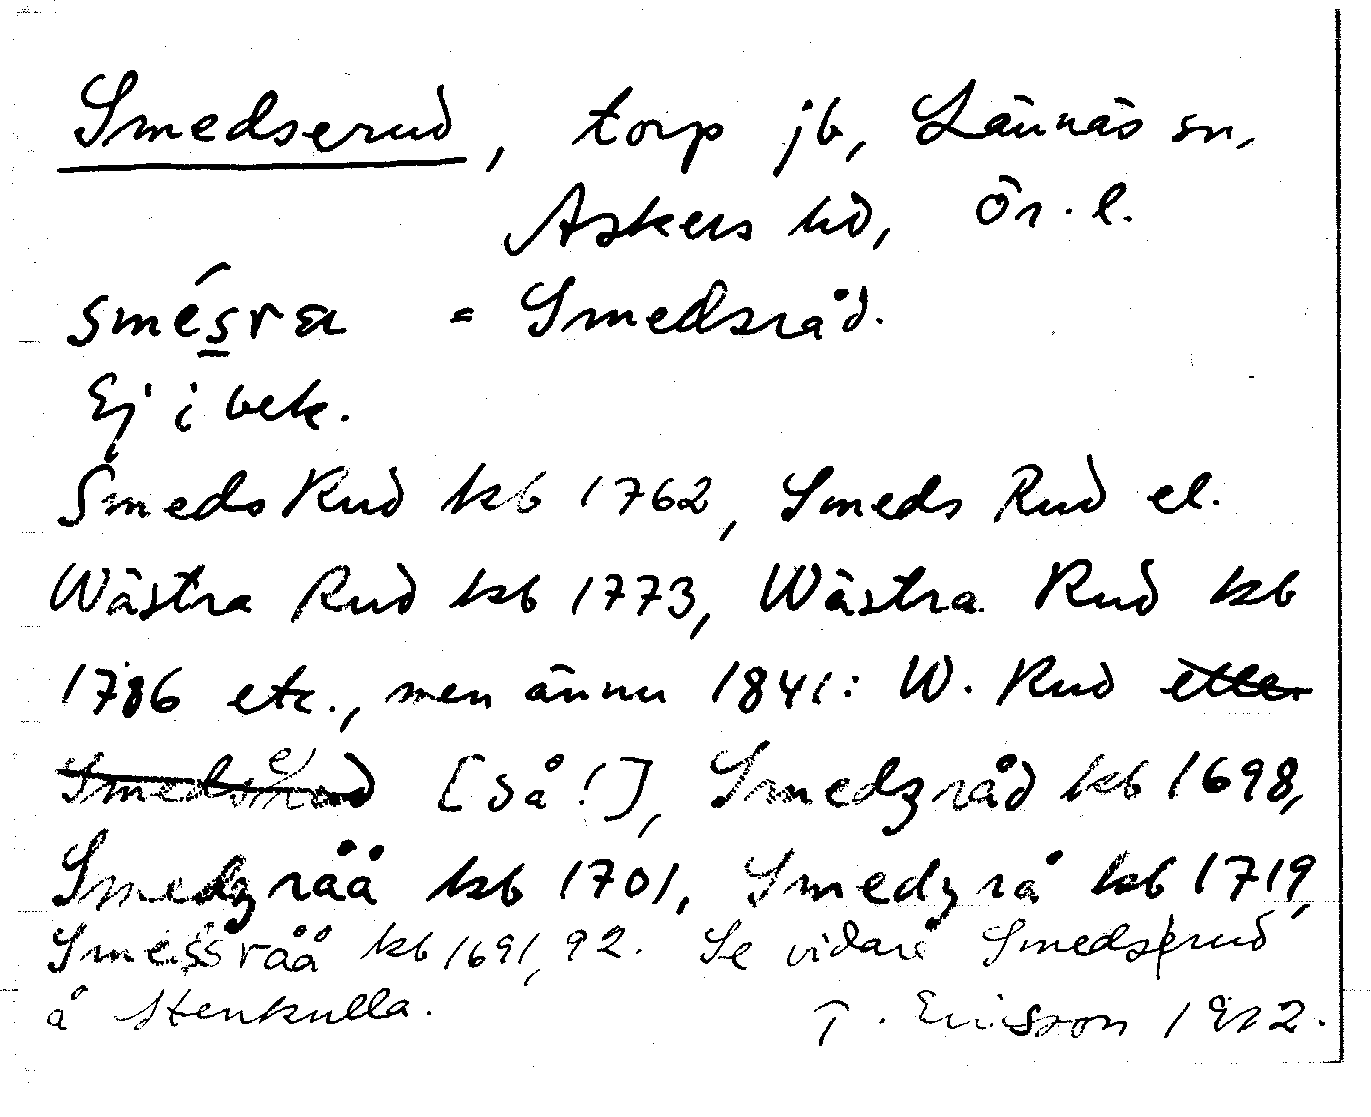 Smedserud, torp jb, Lännäs sn,
Askers hd, Ör. l.
smésra = Smedsråd.
Ej i bek.
Smeds Rud kb 1762, Smeds Rud el.
Wästra Rud kb 1773, Wästra Rud kb
1786 etc., men ännu 1841: W. Rud eller
Smedserud [så!], Smedzråd kb 1698,
Smedzråå kb 1701, Smedzrå kb 1719,
Smessråå kb 1691, 92. Se vidare Smedserud
å Stenkulla. T. Ericsson